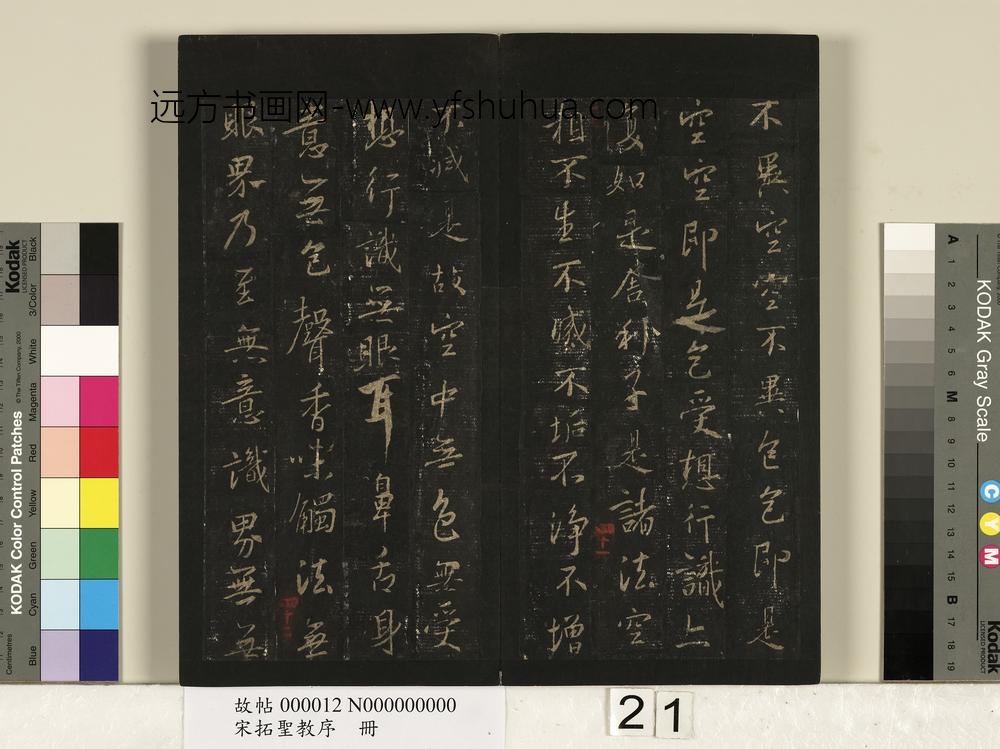 远方书画网-www.yfshuhua.com
不異空空不異色色即是
空空即是色受想行識亦
復如是舍利子是諸法空
相不生不滅不垢不淨不增
不減是故空中無色無受
想行識無眼耳鼻舌身
意無色聲香味觸法無
眼界乃至無意識界無無
故帖 000012 N000000000
宋拓聖教序 冊
21
Kodak
LICENSED PRODUCT
KODAK Color Control Patches
© The Tiffen Company, 2000
Centimetres
Blue
Cyan
Green
Yellow
Red
Magenta
White
3/Color
Black
KODAK Gray Scale
C
Y
M
Kodak
LICENSED PRODUCT
A 1 2 3 4 5 6 M 8 9 10 11 12 13 14 15 B 17 18 19